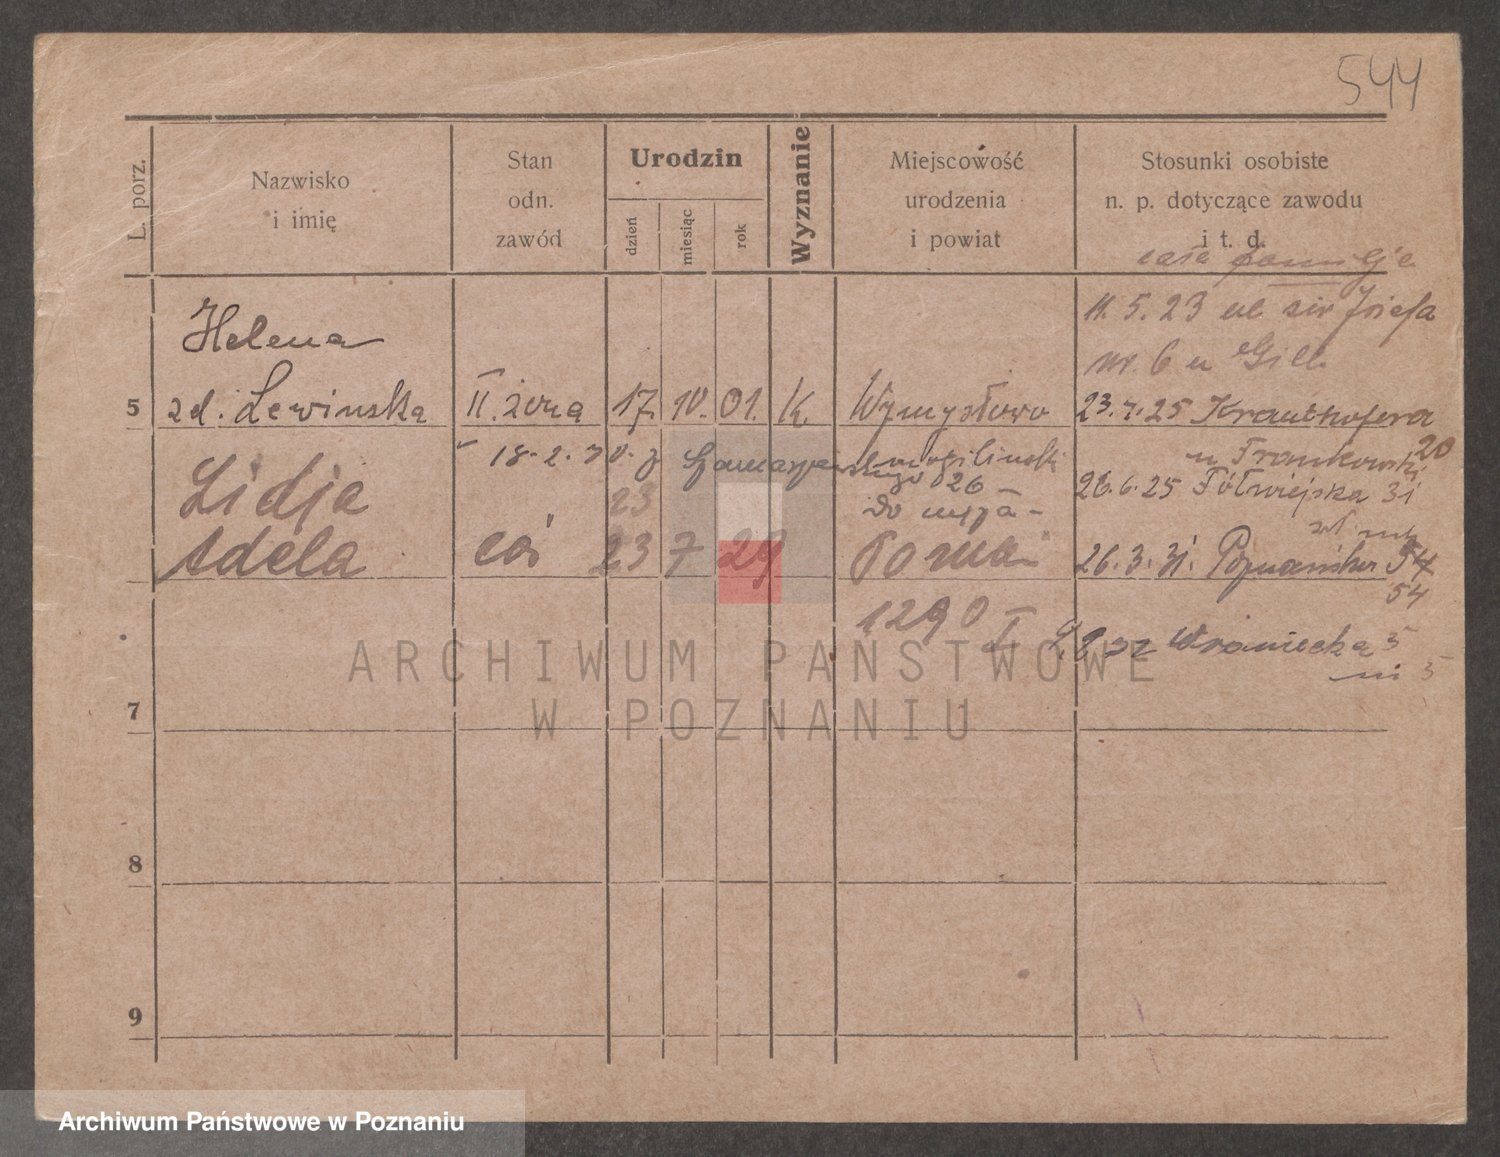 544
L. porz.
Nazwisko
i imię
Stan
odn.
zawód
Urodzin
dzień
miesiąc
rok
Wyznanie
Miejscowość
urodzenia
i powiat
Stosunki osobiste
n. p. dotyczące zawodu
i t. d.
cała familja
11. 5. 23 ul. św Józefa
nr. 6 u Gill.
Helena
5 zd. Lewinska II. żona 17. 10. 01. K. Wymysłowo 23. 7. 25 Krauthofera 20
18. 2. 30. z
mogilinski
u Frankowski
Lidja
23
26
26. 6. 25 Półwiejska 31
do męża
Adela
có 23 7 29 Pozna
26. 3. 31. Poznańska 54
54
1290 I
Wroniecka 5
m 5
7
8
9
ARCHIWUM PAŃSTWOWE
W POZNANIU
Archiwum Państwowe w Poznaniu